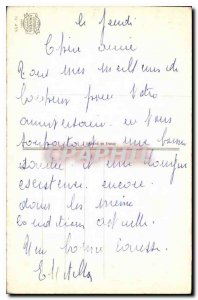 le Jeudi
Chère amie
Tous mes meilleurs
pour votre
anniversaire en vous
souhaitant une bonne
santé et une longue
existence encore
dans les même
conditions actuelle.
Une bonne caresse